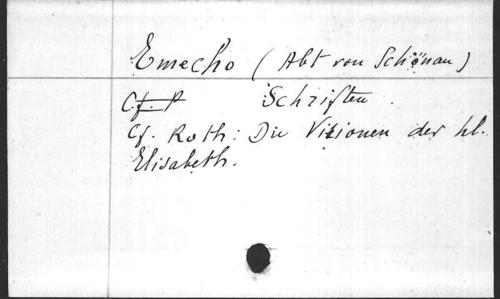 Emecho (Abt von Schönau)
Schriften
Cf. Roth: Die Visionen der hl.
Elisabeth.